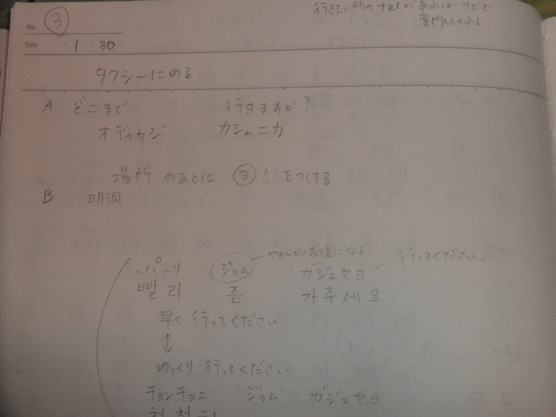 No. ③
行きたい所のtelがあれば ナビで
Date ・1 ・30
タクシーにのる
A どこまで 行きますか?
オディカジ カシムニカ
場所 のあとに ヨ ? をつける
B 明洞
ッパリ ジョム やわらかい表現になる ガジュセヨ 行ってください
빨리 좀 가주세요
早く 行ってください
↕
ゆっくり 行ってください
チョンチョニ ジョム ガジュセヨ